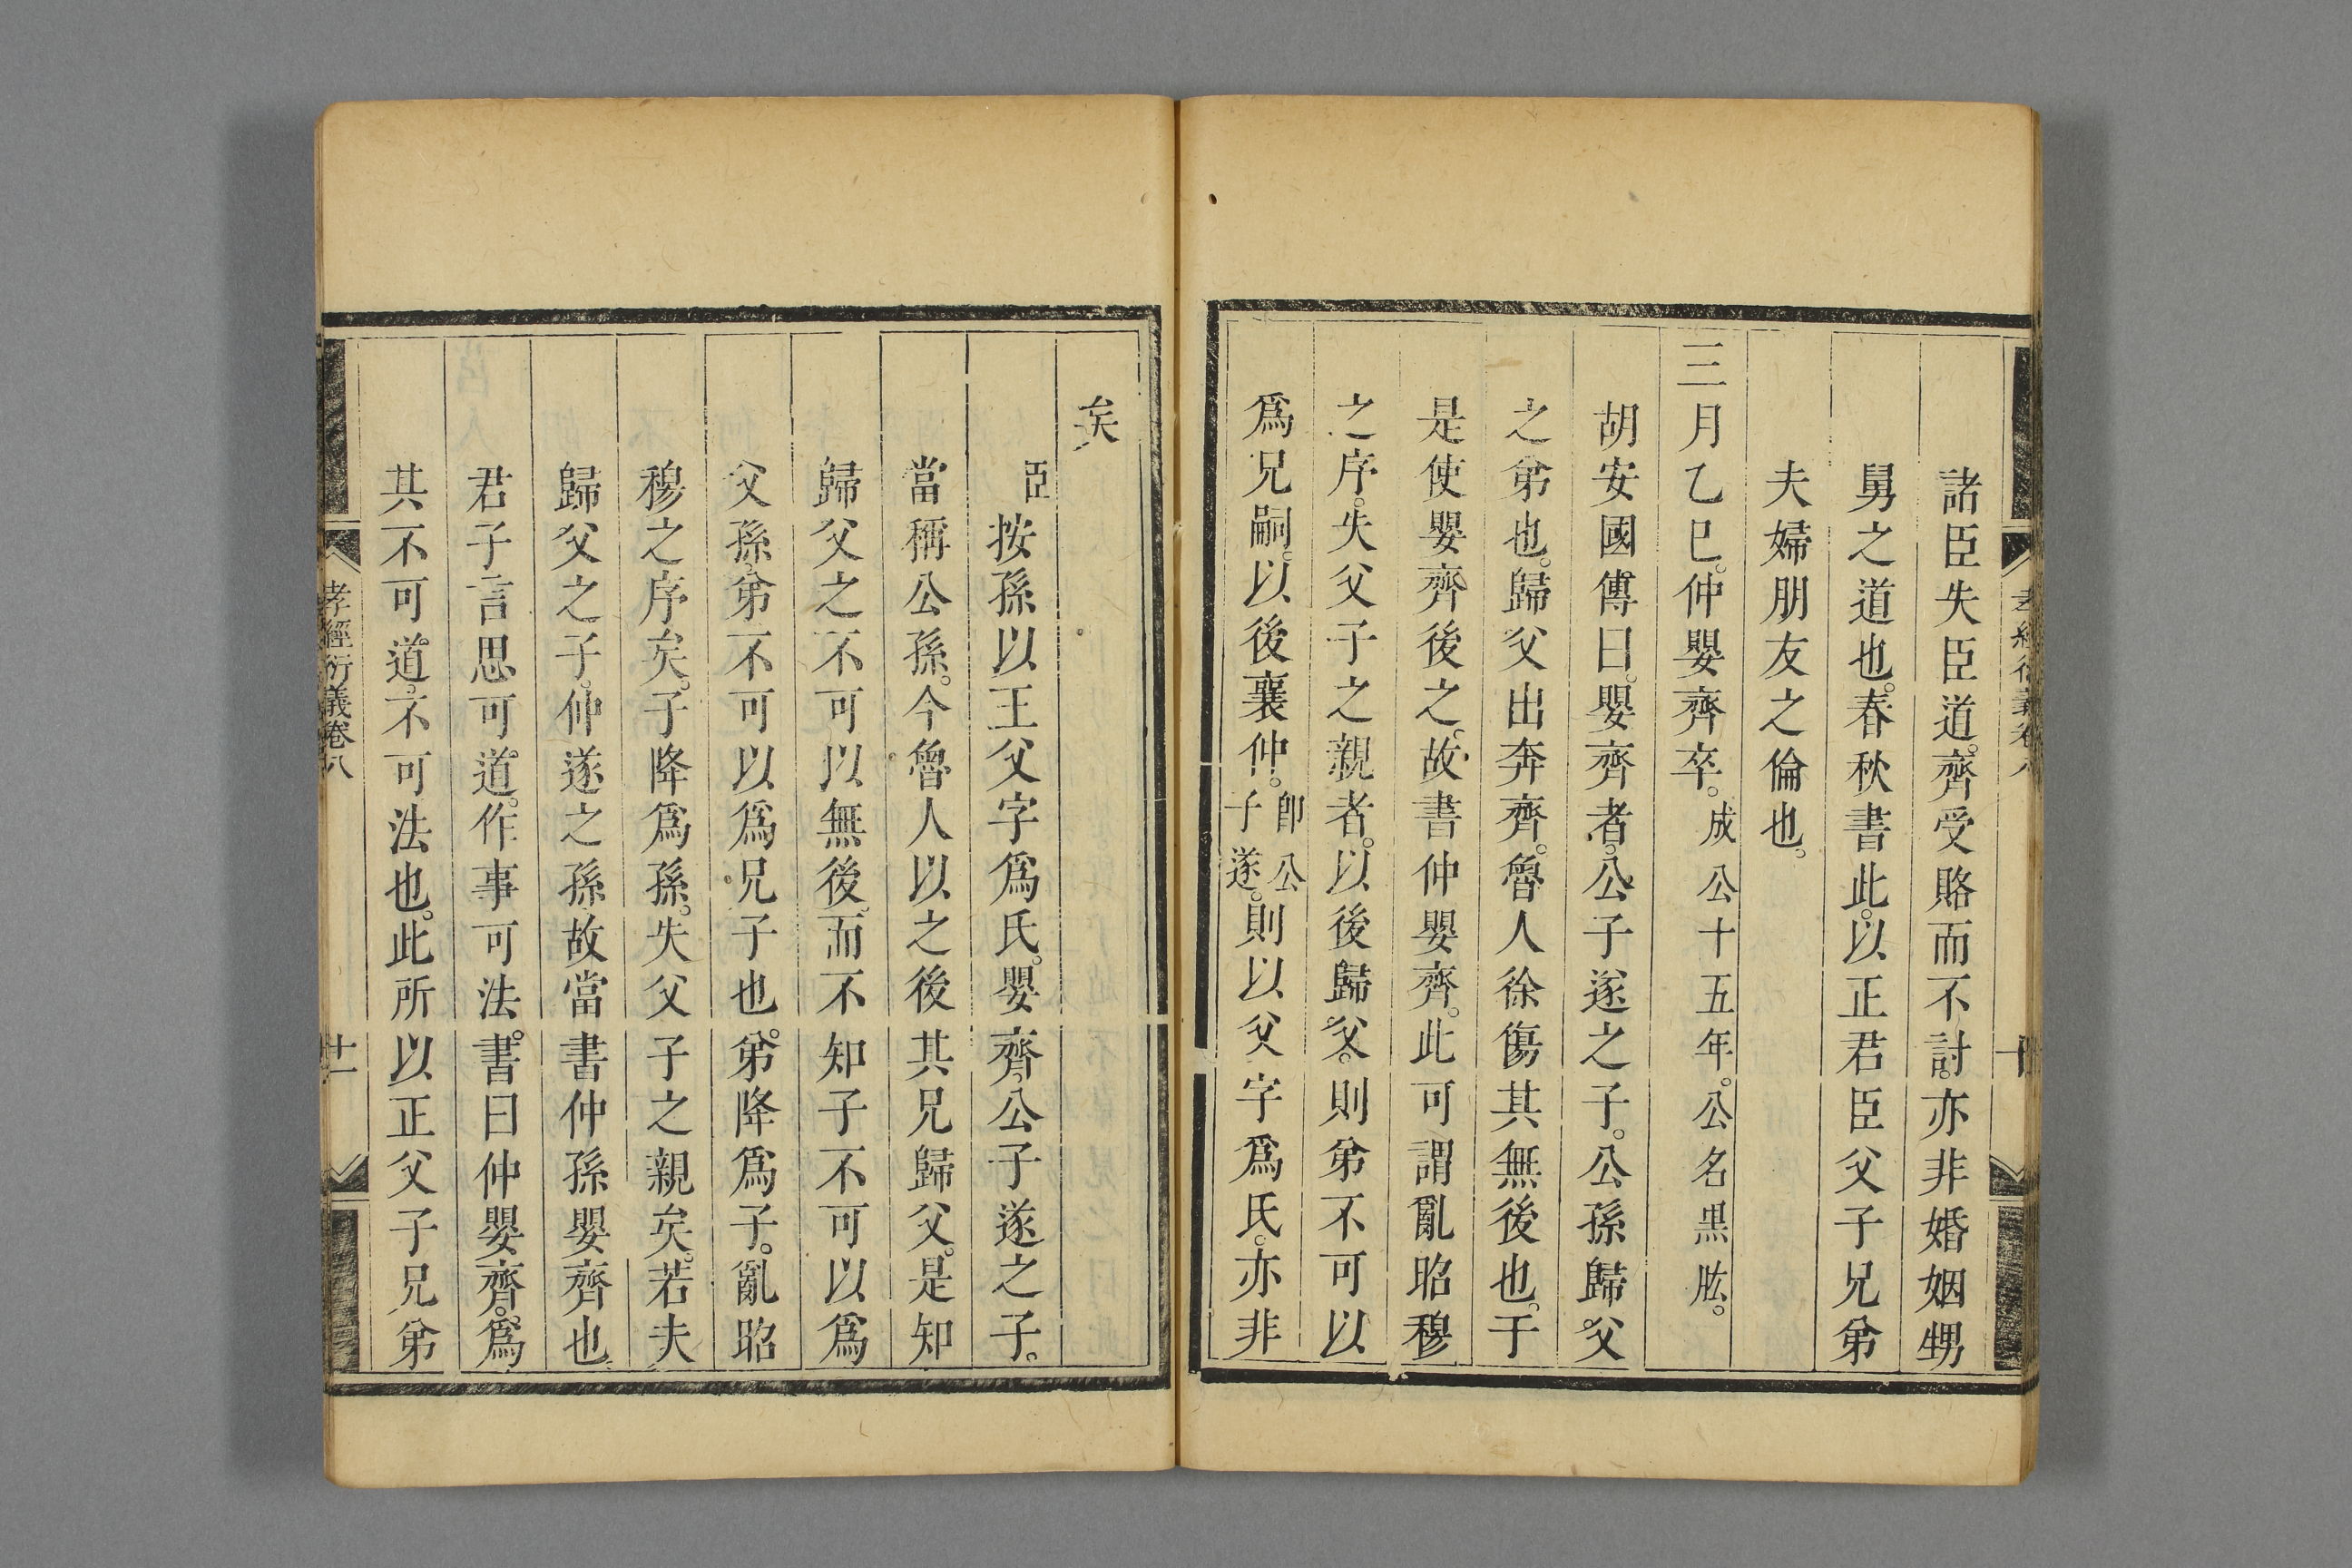 諸臣失臣道。齊受賂而不討。亦非婚姻甥
舅之道也。春秋書此。以正君臣父子兄弟
夫婦朋友之倫也。
三月乙巳。仲嬰齊卒。成公十五年。公名黑肱。
胡安國傳曰。嬰齊者。公子遂之子。公孫歸父
之弟也。歸父出奔齊。魯人徐傷其無後也。于
是使嬰齊後之。故書仲嬰齊。此可謂亂昭穆
之序。失父子之親者。以後歸父。則弟不可以
爲兄嗣。以後襄仲。卽公子遂。則以父字爲氏。亦非
矣
臣按孫以王父字爲氏。嬰齊。公子遂之子。
當稱公孫。今魯人以之後其兄歸父。是知
歸父之不可以無後。而不知子不可以爲
父孫。弟不可以爲兄子也。弟降爲子。亂昭
穆之序矣。子降爲孫。失父子之親矣。若夫
歸父之子。仲遂之孫。故當書仲孫嬰齊也
君子言思可道。作事可法。書曰仲嬰齊。爲
其不可道。不可法也。此所以正父子兄弟
孝經衍義卷八
十一